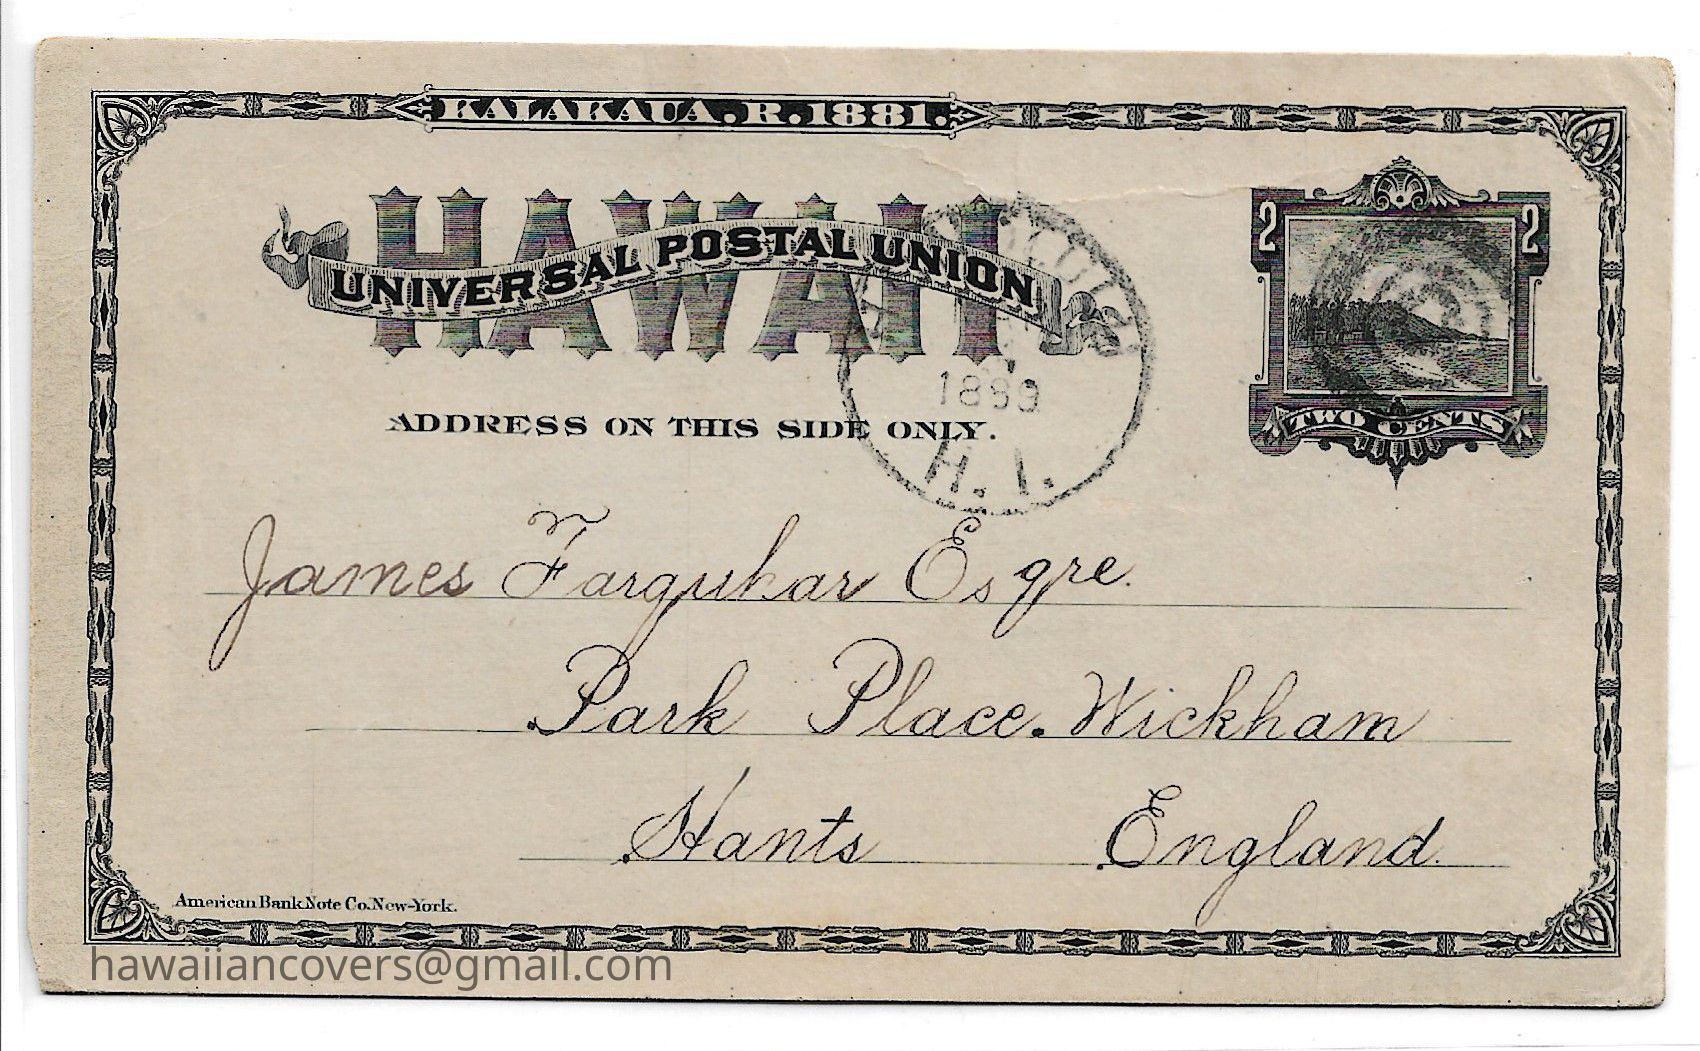 KALAKAUA. R. 1881.
HAWAII
UNIVERSAL POSTAL UNION
2 2
TWO CENTS
1889
H. I.
ADDRESS ON THIS SIDE ONLY.
James Farquhar Esqre.
Park Place. Wickham
Hants England.
American Bank Note Co. New-York.
hawaiiancovers@gmail.com